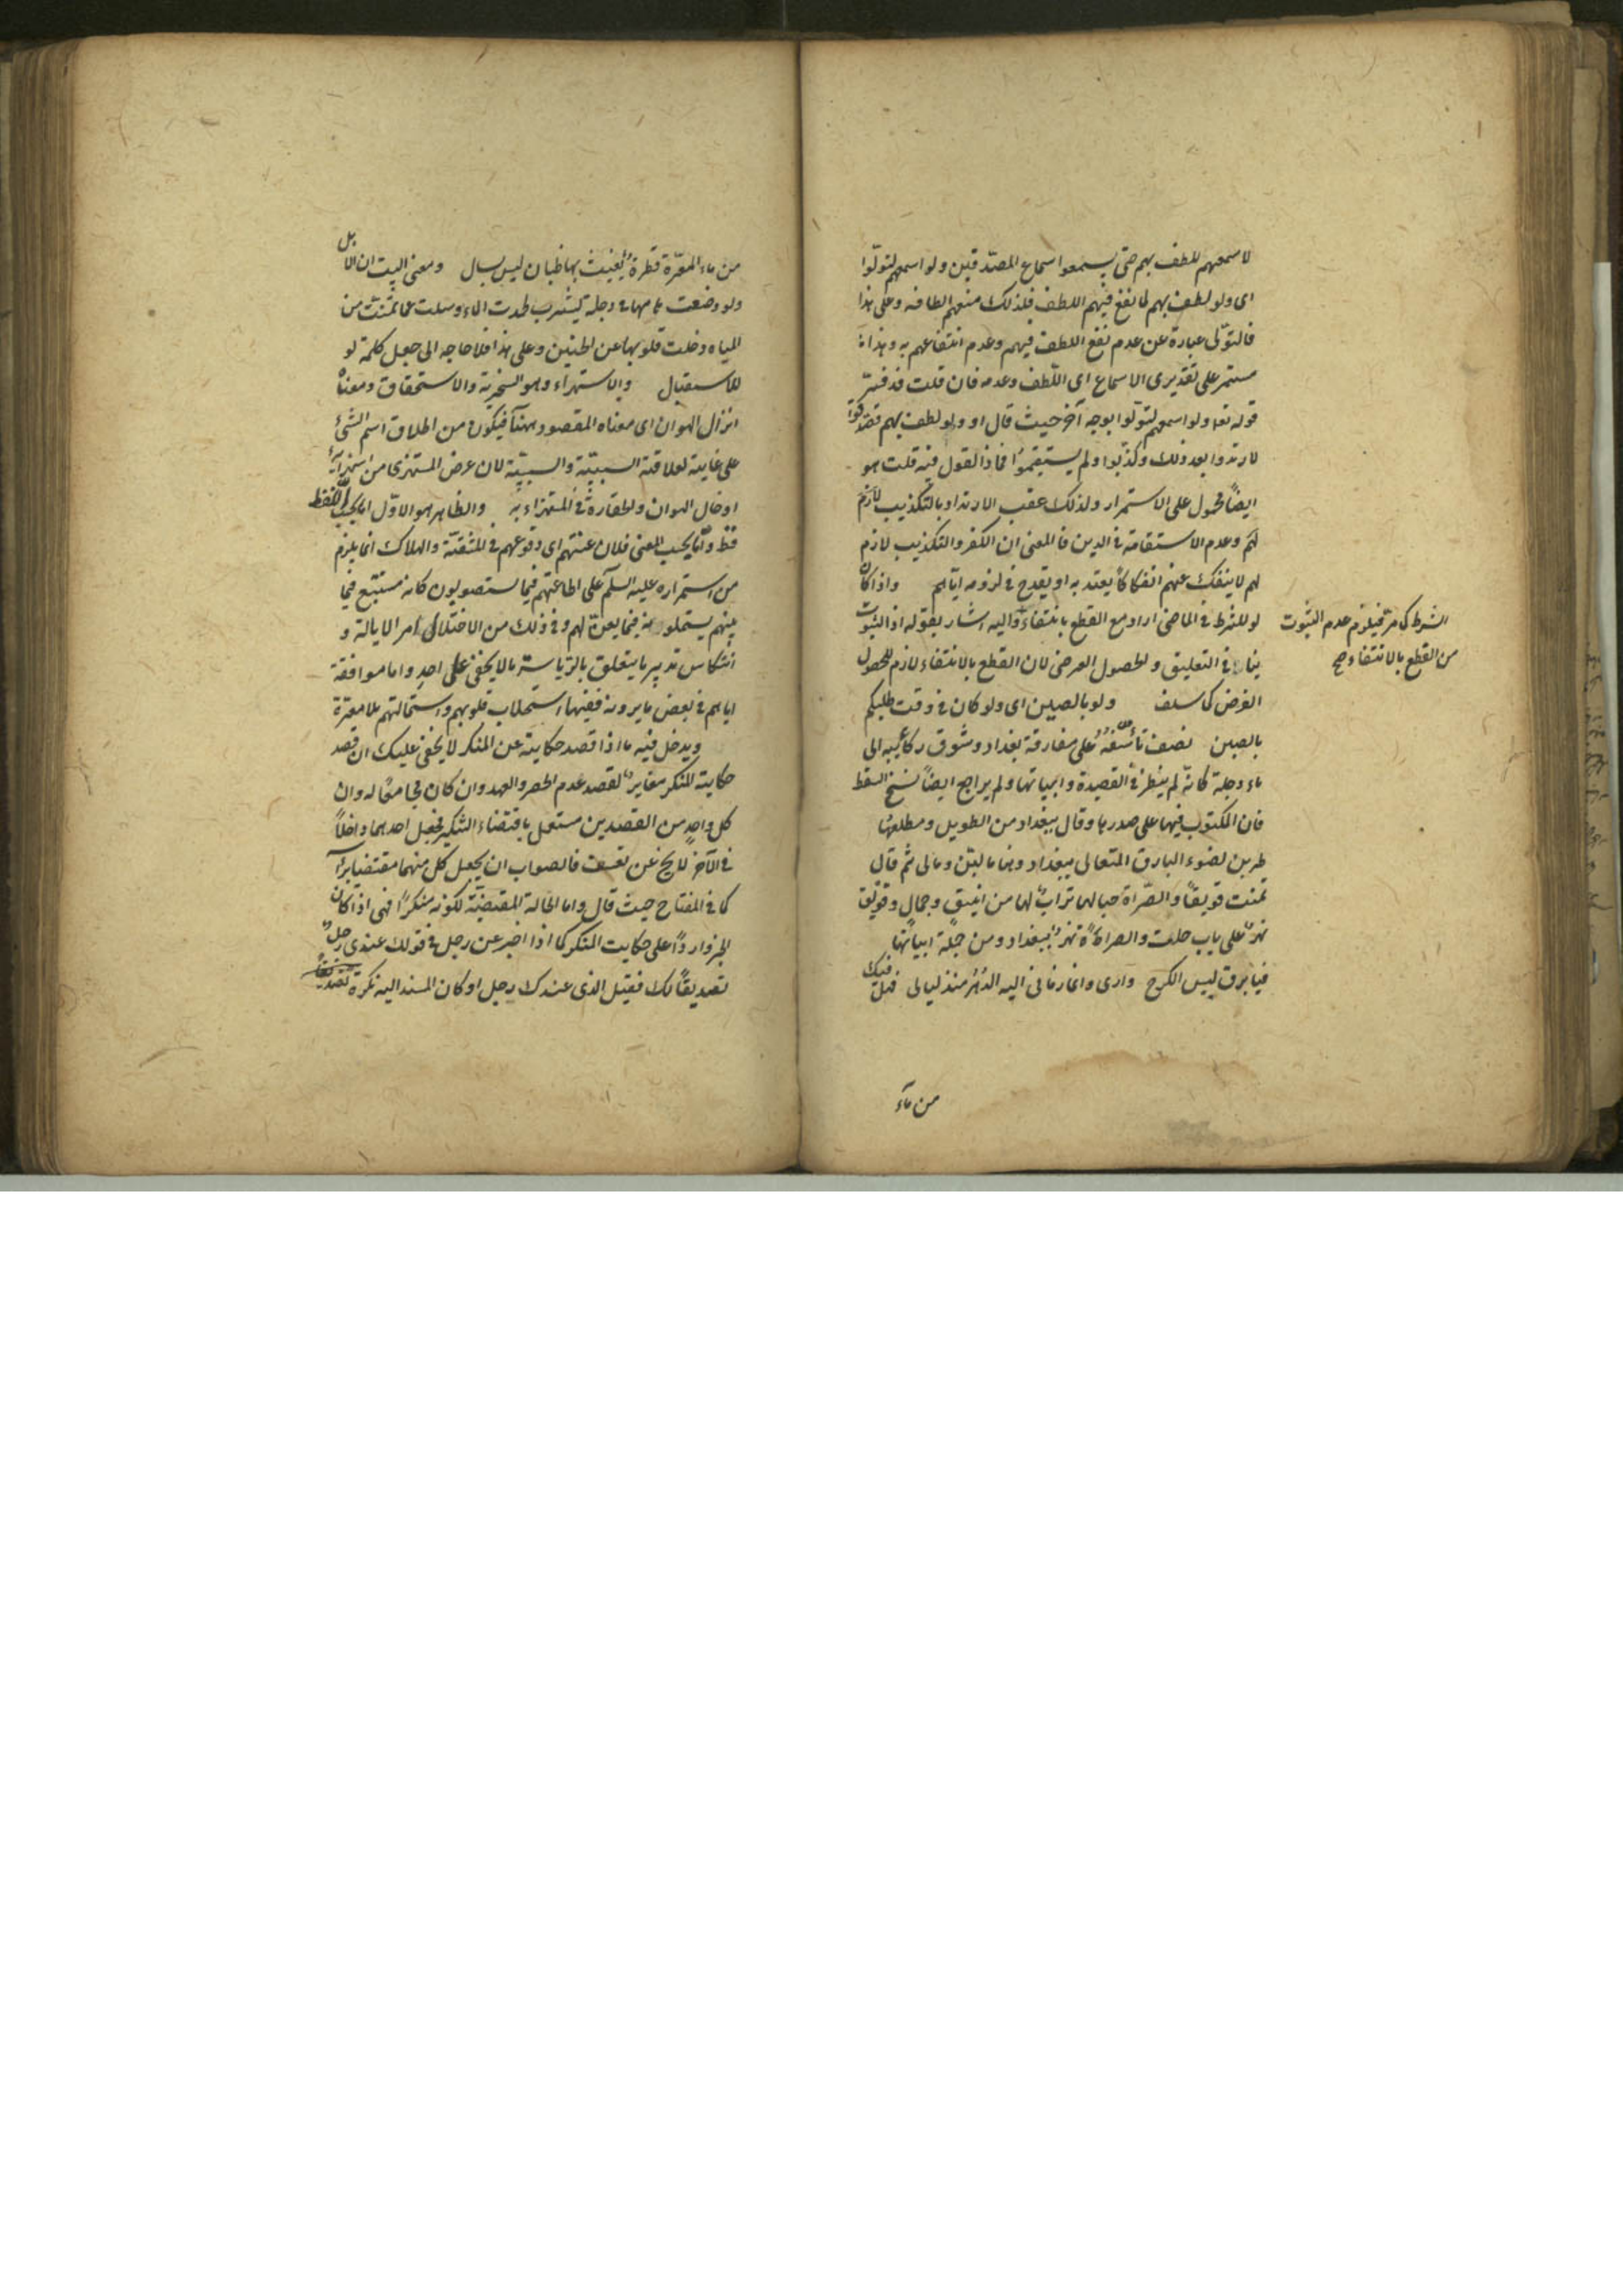 لاسمعهم للطف بهم حتى يسمعوا سماع المصدقين ولو اسمعهم لتولوا
اى ولو لطف بهم لما نفع فيهم اللطف فلذلك منعهم الطافه وعلى هذا
فالتولى عبارة عن عدم نفع اللطف فيهم وعدم انتفاعهم به وهذا
مستمر على تقديرى الاسماع اى اللطف وعدمه فان قلت قد فسر
قوله تعا ولو اسمعهم لتولوا بوجه آخر حيث قال او ولو لطف بهم فصدقوا
لارتدوا بعد ذلك وكذبوا ولم يستقيموا فماذا القول فيه قلت هو
ايضاً محمول على الاستمرار ولذلك عقب الارتداد بالتكذيب
وعدم الاستقامة فى الدين فالمعنى ان الكفر والتكذيب لازم
لهم لا ينفك عنهم انفكاكاً يعتد به او يقدح فى لزومه اياهم واذا كان
لو للشرط فى الماضى اراد مع القطع بانتفاء واليه اشار بقوله اذ الثبوت
ينافى التعليق والحصول الفرضى لان القطع بالانتفاء لازم للحصول
الفرضى كما سلف ولو بالصين اى ولو كان فى وقت طلبكم
بالصين نصف تأسفه على مفارقة بغداد وشوق ركائبه الى
ماء دجلة كانه لم ينظر فى القصيدة وابياتها ولم يراجع ايضاً نسخ السقط
فان المكتوب فيها على صدرها وقال ببغداد من الطويل ومطلعها
طربن لضوء البارق المتعالى ببغداد وهنا مالهن ومالى ثم قال
تمنت قويقاً والصراة حيالها تراب لها من اينق وجمال وقويق
نهر على باب حلب والصراة نهر ببغداد ومن جملة ابياتها
فيا برق ليس الكرخ دارى وانما رمانى اليه الدهر منذ ليالى فهل فيك
من ماء
الشرط كما مر فيلزم عدم الثبوت
من القطع بالانتفاء صح
من ماء المعرة قطرة يغيث بها ظمآن ليس بسال ومعنى البيت ان الابل
ولو وضعت هامها فى دجلة ليشرب لحمدت الماء وسلت عما تمنت من
المياه وخلت قلوبها عن الحنين وعلى هذا فلا حاجه الى جعل كلمة لو
للاستقبال والاستهزاء وهو السخرية والاستحقاق ومعناه
انزال الهوان اى معناه المقصود ههنا فيكون من اطلاق اسم الشئ
على غايته لعلاقة السببية والمسببية لان غرض المستهزى من استهزائه
ادخال الهوان والحقارة فى المستهزاء به والظاهر هو الاول اما بحسب اللفظ
فظ واما بحسب المعنى فلان عنتهم اى وقوعهم فى المشقة والهلاك انما يلزم
من استمراره عليه السلام على اطاعتهم فيما يستصوبون كانه مستتبع فيما
بينهم يستعملونه فيما يعن لهم وفى ذلك من الاختلال امر الايالة و
انتكاس تدبير ما يتعلق بالرياسة ما لا يخفى على احد واما موافقة
اياهم فى بعض ما يرونه ففيها استجلاب قلوبهم واستمالتهم بلا معرة
ويدخل فيه ما اذا قصد حكاية عن المنكر لا يخفى عليك ان قصد
حكاية المنكر مغاير لقصد عدم الحصر والعهد وان كان مجامعًا له وان
كل واحد من القصدين مستقل باقتضاء التنكير فجعل احدهما داخلاً
فى الآخر لا يخ عن تعسف فالصواب ان يجعل كل منهما مقتضيا برأسه
كما فى المفتاح حيث قال واما الحالة المقتضية لكونه منكرًا فهى اذا كان
الخبر واردًا على حكايت المنكر كما اذا اخبر عن رجل فى قولك عندى رجل
تصديقاً لك فقيل الذى عندك رجل او كان المسند اليه نكرة